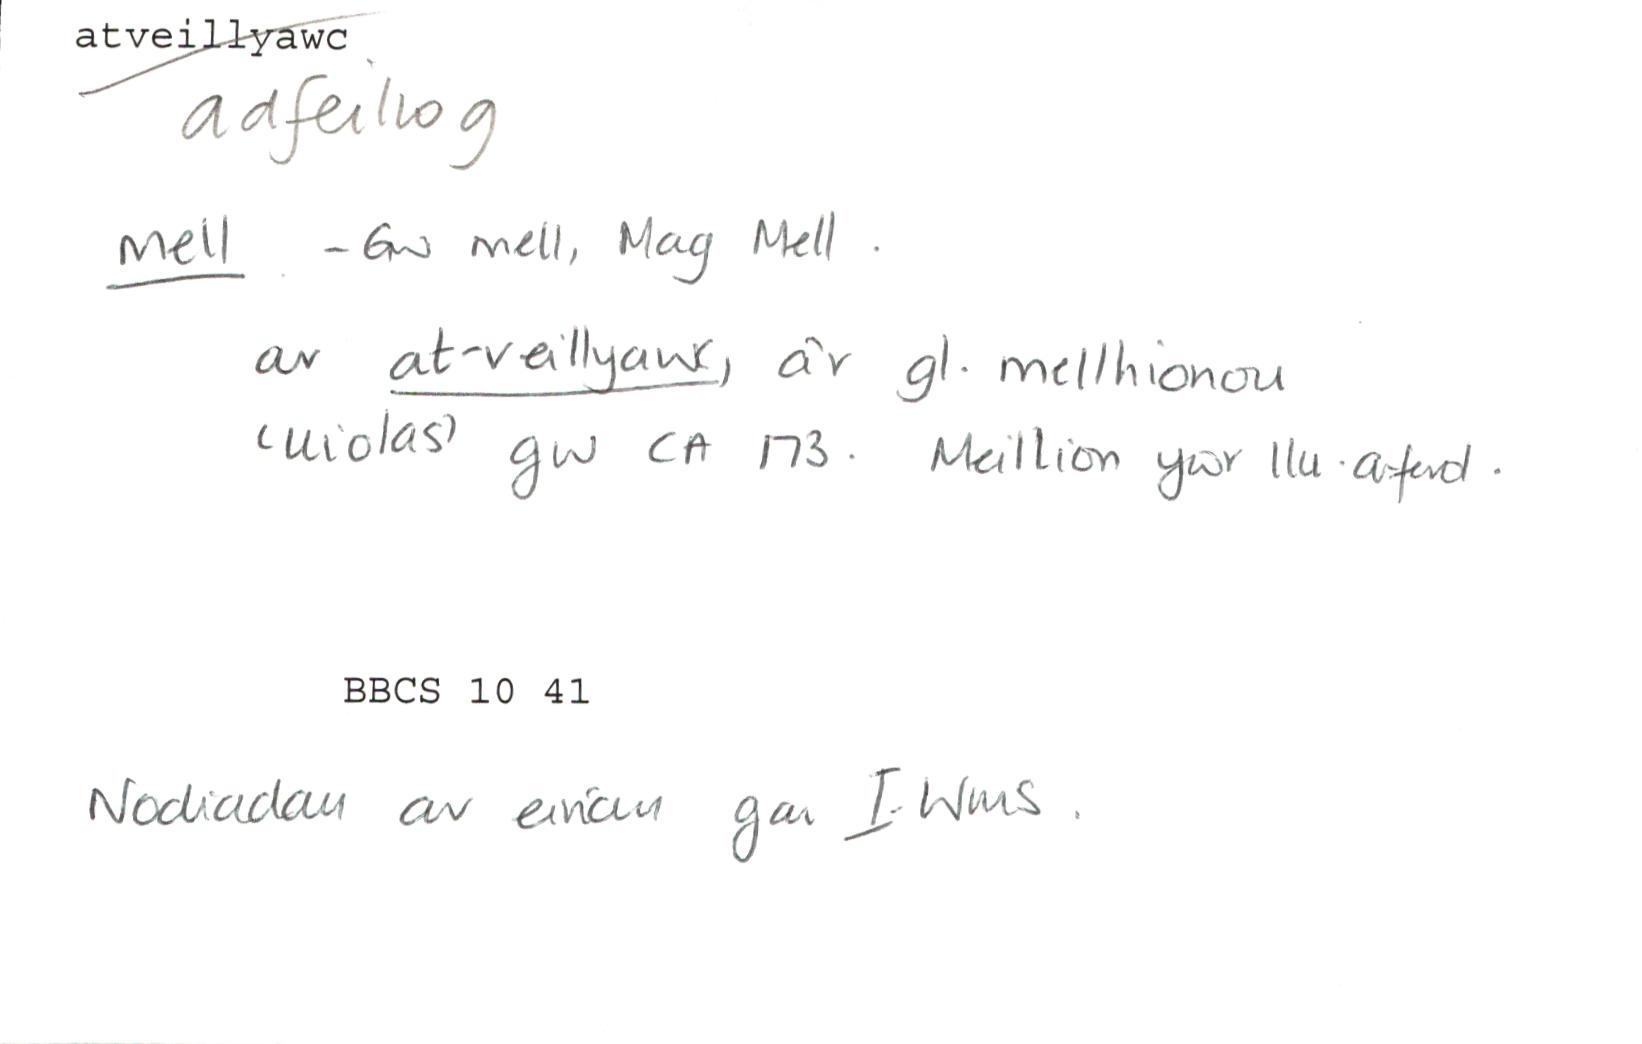 atveillyawc
adfeiliog
mell - Gw mell, Mag Mell.
ar at-veillyawc, a'r gl. mellhionou
(uiolas) gw CA 173. Meillion yw'r llu. arferol.
BBCS 10 41
Nodiadau ar eiriau gan I. Wms.